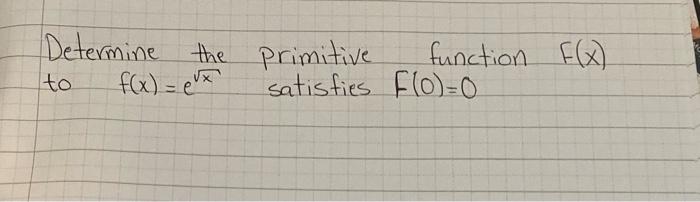 Determine the primitive function F(x)
to f(x) = e^√x satisfies F(0)=0